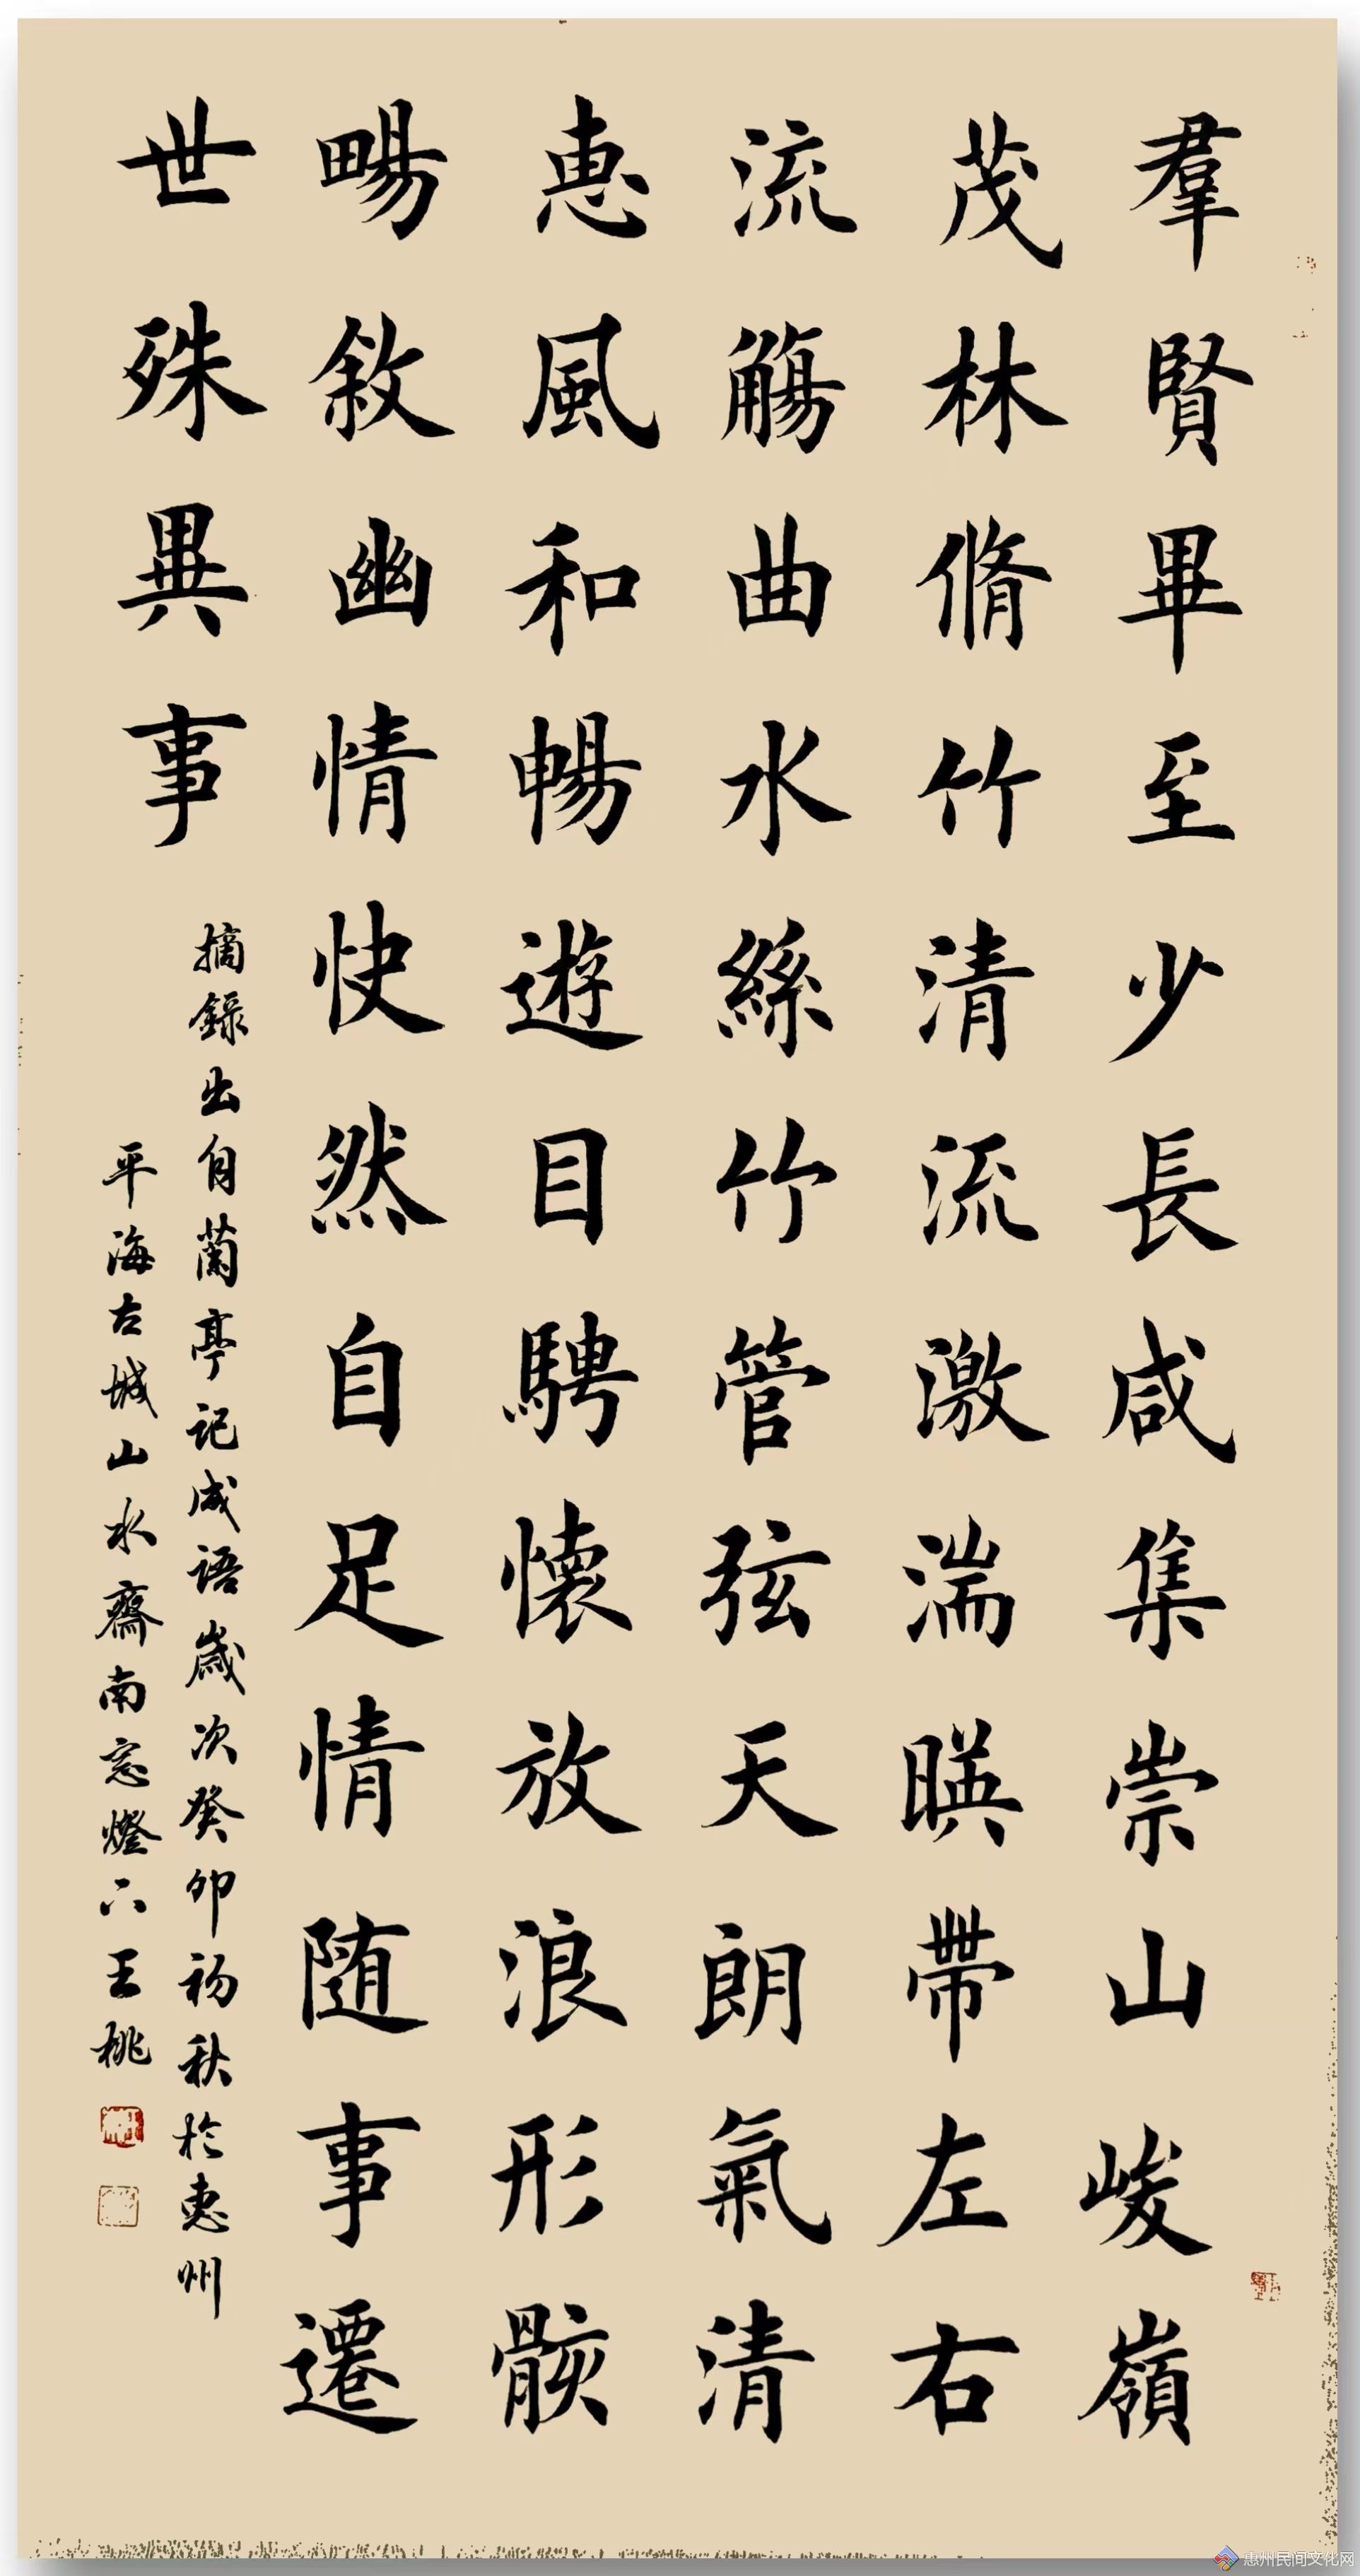 羣賢畢至少長咸集崇山峻嶺
茂林脩竹清流激湍暎帶左右
流觴曲水絲竹管弦天朗氣清
惠風和暢遊目騁懷放浪形骸
暢敘幽情快然自足情随事遷
世殊異事
摘錄出自蘭亭记成语歲次癸卯初秋於惠州
平海古城山水齋南窓燈下王桃
惠州民间文化网